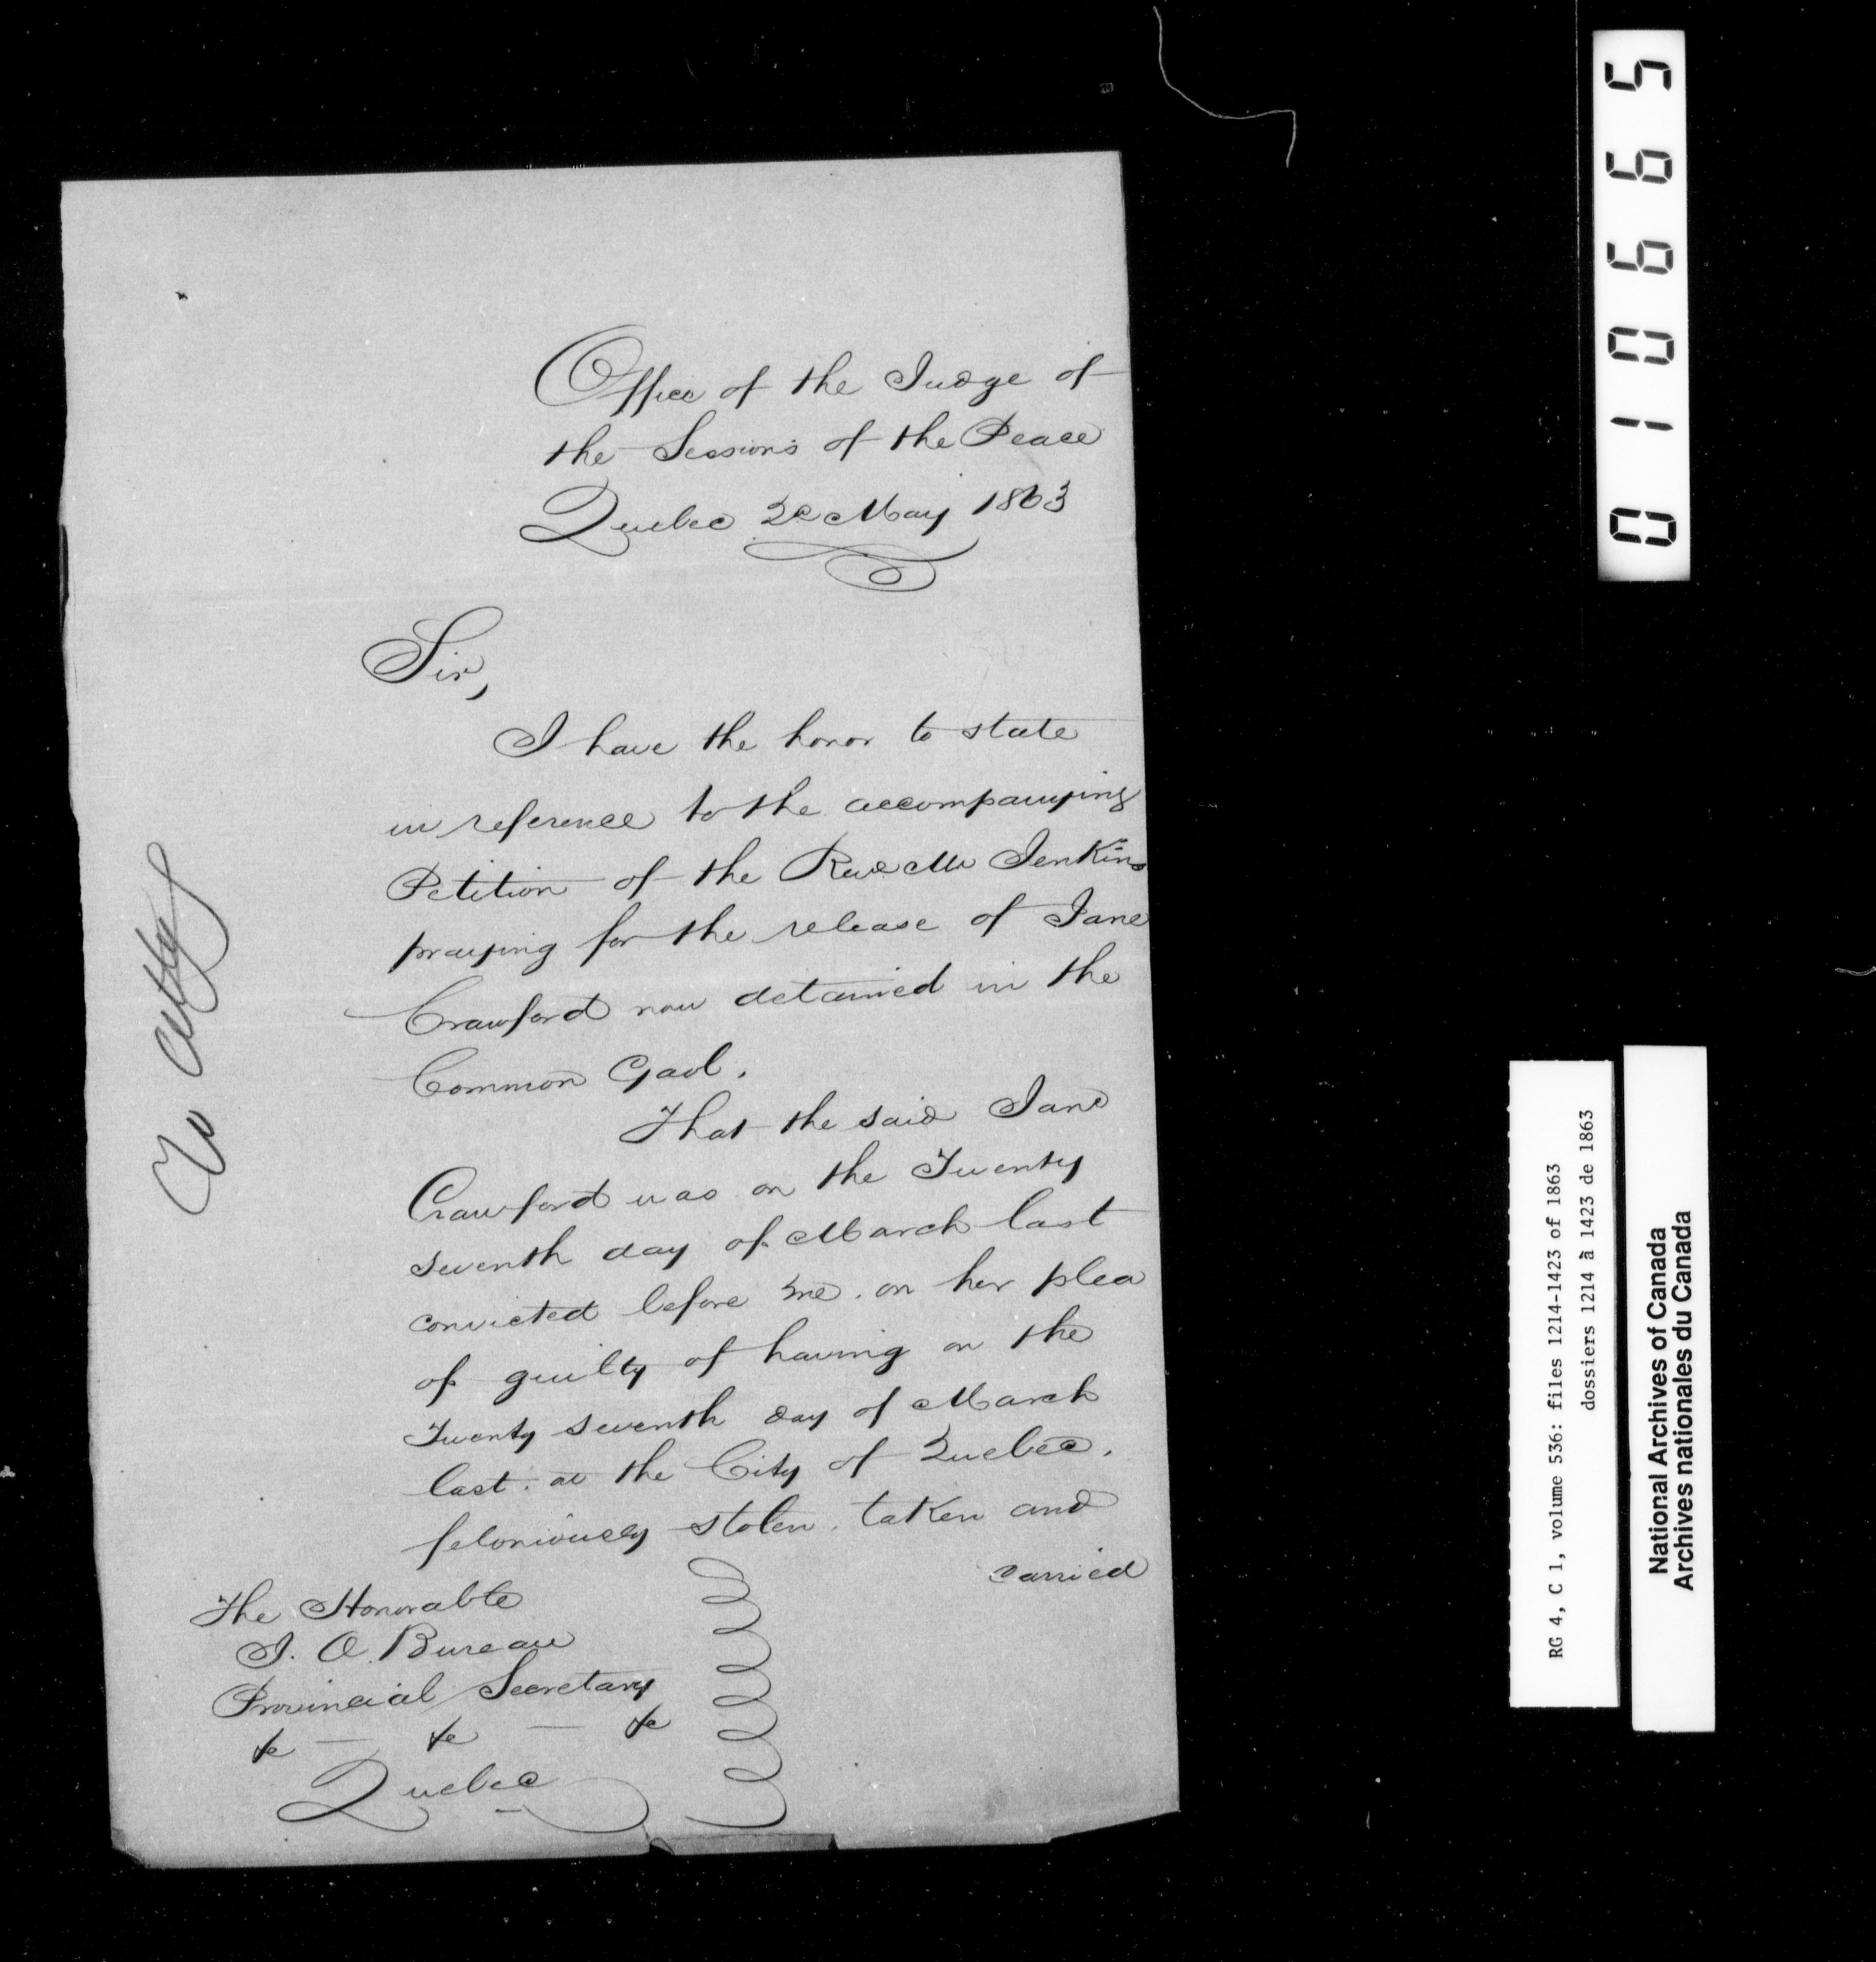 Office of the Judge of
the Sessions of the Peace
Quebec 2d May 1863
Sir,
I have the honor to state
in reference to the accompanying
Petition of the Revd Mr Jenkins
praying for the release of Jane
Crawford now detained in the
Common Gaol.
That the said Jane
Crawford was on the Twenty
seventh day of March last
convicted before me. on her plea
of guilty of having on the
Twenty seventh day of March
last. at the City of Quebec.
feloniously stolen. taken and
carried
The Honorable
J. O. Bureau
Provincial Secretary
&c — &c — &c
Quebec
To Atty
010665
RG 4, C 1, volume 536: files 1214-1423 of 1863
dossiers 1214 à 1423 de 1863
National Archives of Canada
Archives nationales du Canada